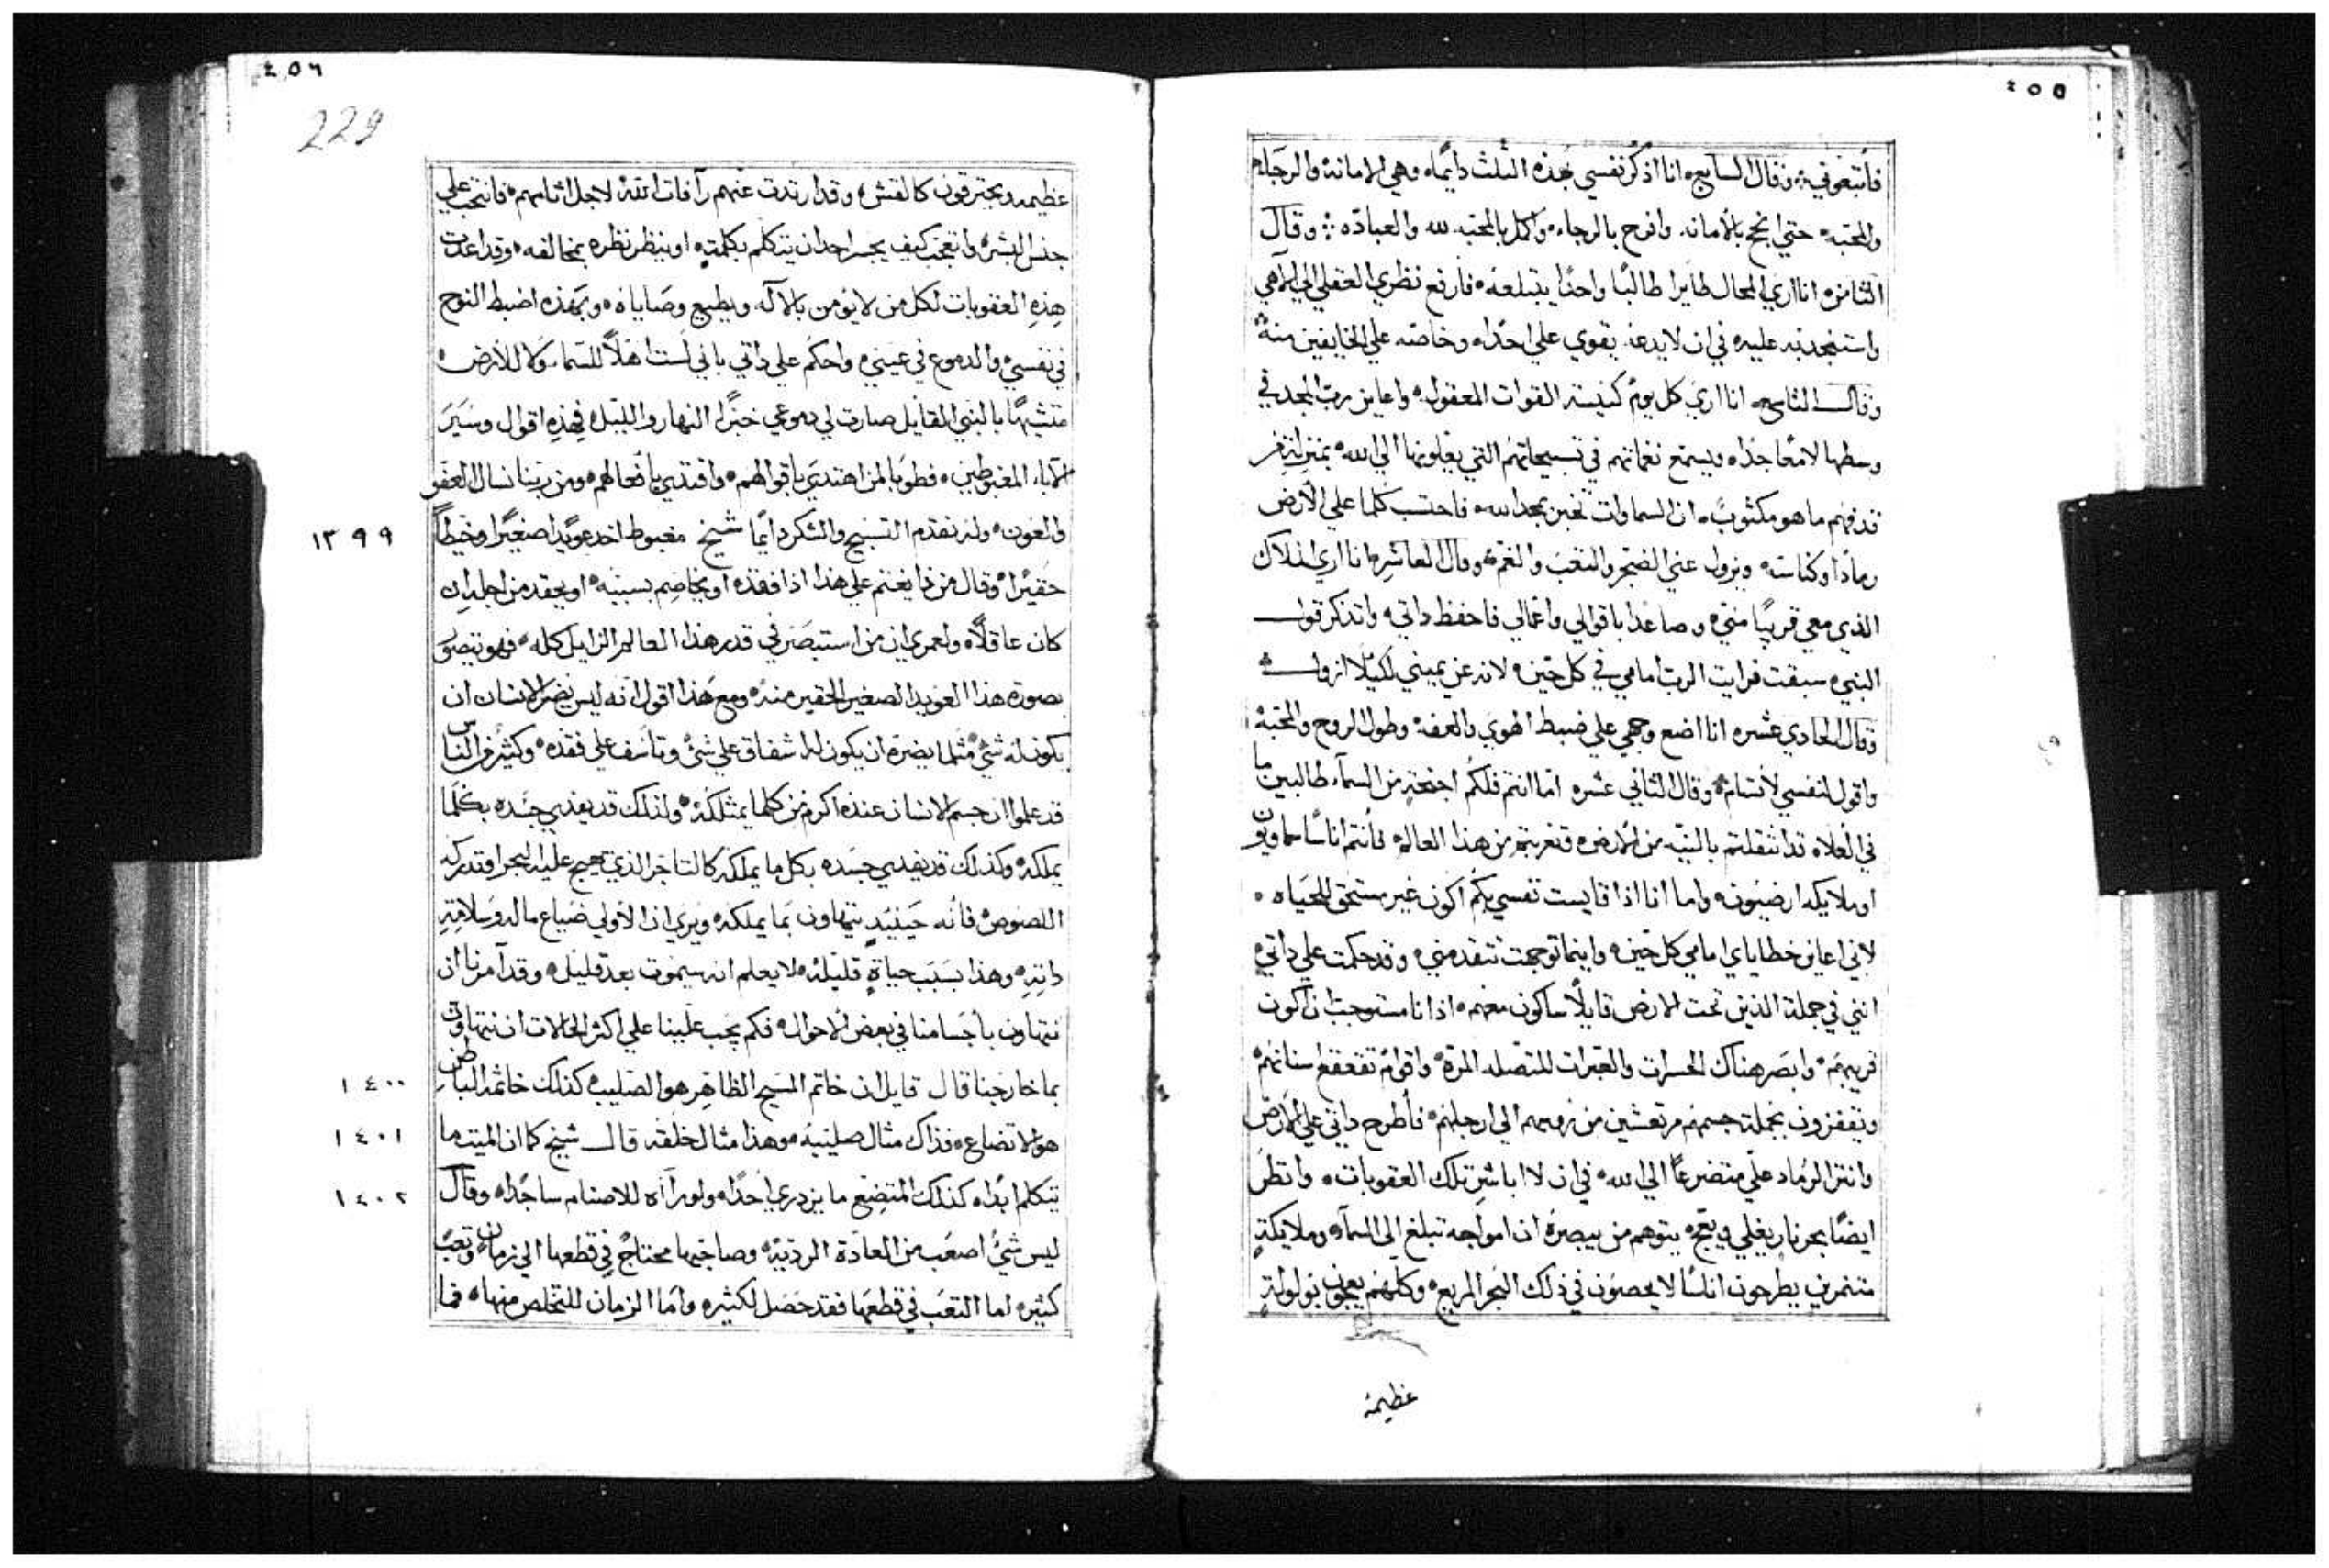 ٤٥٥
فأتبعوني ؞ وقال السابع ه انا اذكر نفسي بهذه الثلث دايمًا ه وهي الامانة والرجاء
والمحبه ه حتي انجح بالأمانه ه وافرح بالرجاء ه واكمل بالمحبه لله والعباده ؞ وقال
الثامن ه انا اري المحال طايرا طالبًا واحدًا يبتلعه ه فارفع نظري العقلي الي الاهي
واستنجد به عليه في ان لا يدعه يقوي علي احدًا ه وخاصه علي الخايفين منه
وقال التاسع ه انا اري كل يوم كنيسة القوات المعقوله ه واعاين رب المجد في
وسطها لامعًا جدًا ه ويستمع نغماتهم في تسبيحاتهم التي يعلونها الي الله ه بمنزلة من
قد فهم ما هو مكتوب ه ان السماوات تخبر بمجد الله ه فاحتسب كلما علي الأرض
رمادًا وكناسة ه ويزول عني الضجر والتعب والغم ه وقال العاشر انا اري الملاك
الذي معي قريبًا مني ه وصاعدا باقوالي واعمالي فاحفظ داتي ه واتذكر قول
النبي ه سبقت فرايت الرب امامي في كل حين ه لانه عن يميني لكيلا ازول
وقال الحادي عشر ه انا اضع وجهي علي ضبط الهوي والعفه وطول الروح والمحبة
واقول لنفسي لا تنام ه وقال الثاني عشر ه اما انتم فلكم اجنحة من السماء طالبين ما
في العلاه قد انتقلتم بالنيه من الأرض ه وتغربتم من هذا العالم ه فأنتم اناسًا سماويون
او ملايكه ارضيون ه واما انا اذا قايست نفسي بكم اكون غير مستحق للحياه ه
لاني اعاين خطاياي امامي كل حين ه واينما توجهت تتقدمني ه وقد حكمت علي داتي
انني في جملة الذين تحت الارض قايلًا ساكون معهم ه اذ انا مستوجب ان اكون
قريبهم ه وابصر هناك الحسرات والعبرات المتصله المرة ه واقوام تقعقع اسنانهم
ويقفزون بجملة جسمهم مرتعشين من روسهم الي ارجلهم ه فأطرح داتي علي الارض
وانثر الرماد علي متضرعًا الي الله ه في ان لا اباشر تلك العقوبات ه وانظر
ايضًا بحر نار يغلي ويعج ه يتوهم من يبصره ان امواجه تبلغ الي السماء ه وملايكة
متنمرين يطرحون اناسًا لا يحصون في ذلك البحر المريع ه وكلهم يعجون بولولة
عظيمة
٤٥٦
229
عظيمه ويحترقون كالقش ه وقد ارتدت عنهم رآفات الله لاجل اثامهم ه فانتحب علي
جنس البشر ه واتعجب كيف يجسر احد ان يتكلم بكلمة او ينظر نظره بمخالفه ه وقد اعدت
هذه العقوبات لكل من لا يؤمن بالاله ويطيع وصاياه ه وبهذه اضبط النوح
في نفسي ه والدموع في عيني ه واحكم علي داتي باني لست اهلًا للسماء ولا للأرض ه
متشبهًا بالنبي القايل صارت لي دموعي خبزًا النهار والليل ه فهذه اقوال وسير
الآباء المغبوطين ه فطوبا لمن اهتدي باقوالهم ه واقتدي بافعالهم ه ومن ربنا نسال العفو
١٣٩٩ والعون ه وله نقدم التسبيح والشكر دايمًا شيخ مغبوط اخد عويدًا صغيرًا وخيطًا
حقيرًا ه وقال من ذا يغتم علي هذا اذا فقده او يخاصم بسببه ه او يحقد من اجله ان
كان عاقلًا ه ولعمري ان من استبصر في قدر هذا العالم الزايل كله ه فهو يتصور
بصورة هذا العويد الصغير الحقير منه ه ومع هذا اقول انه ليس يضر الانسان ان
يكون له شي ه مثلما يضره ان يكون له اشفاق علي شي ه وتاسف علي فقده ه وكثير من الناس
قد علموا ان جسم الانسان عنده اكرم من كلما يمتلكه ه ولذلك قد يفدي جسده بكلما
يملكه ه وكذلك قد يفدي جسده بكل ما يملكه كالتاجر الذي يهيج عليه البحر او تدركه
اللصوص ه فانه حينيد يتهاون بما يملكه ه ويري ان الاولي ضياع ماله وسلامة
داته ه وهذا بسبب حياة قليله ه لا يعلم انه سيموت بعد قليل ه وقد آمرنا ان
نتهاون بأجسامنا في بعض الاحوال ه فكم يجب علينا علي اكثر الحالات ان نتهاون
١٤٠٠ بما خارجنا قال قايل ان خاتم المسيح الظاهر هو الصليب ه كذلك خاتمه الباطن
١٤٠١ هو الاتضاع ه فذاك مثال صليبه ه وهذا مثال خلقه قال شيخ كما ان الميت ما
١٤٠٢ يتكلم ابدًا ه كذلك المتضع ما يزدري احدًا ه ولو رآه للاصنام ساجدًا ه وقال
ليس شيء اصعب من العادة الرديه ه وصاحبها محتاج في قطعها الي زمان وتعب
كثير ه اما التعب في قطعها فقد حصل لكثير ه وأما الزمان للتخلص منها ه فما